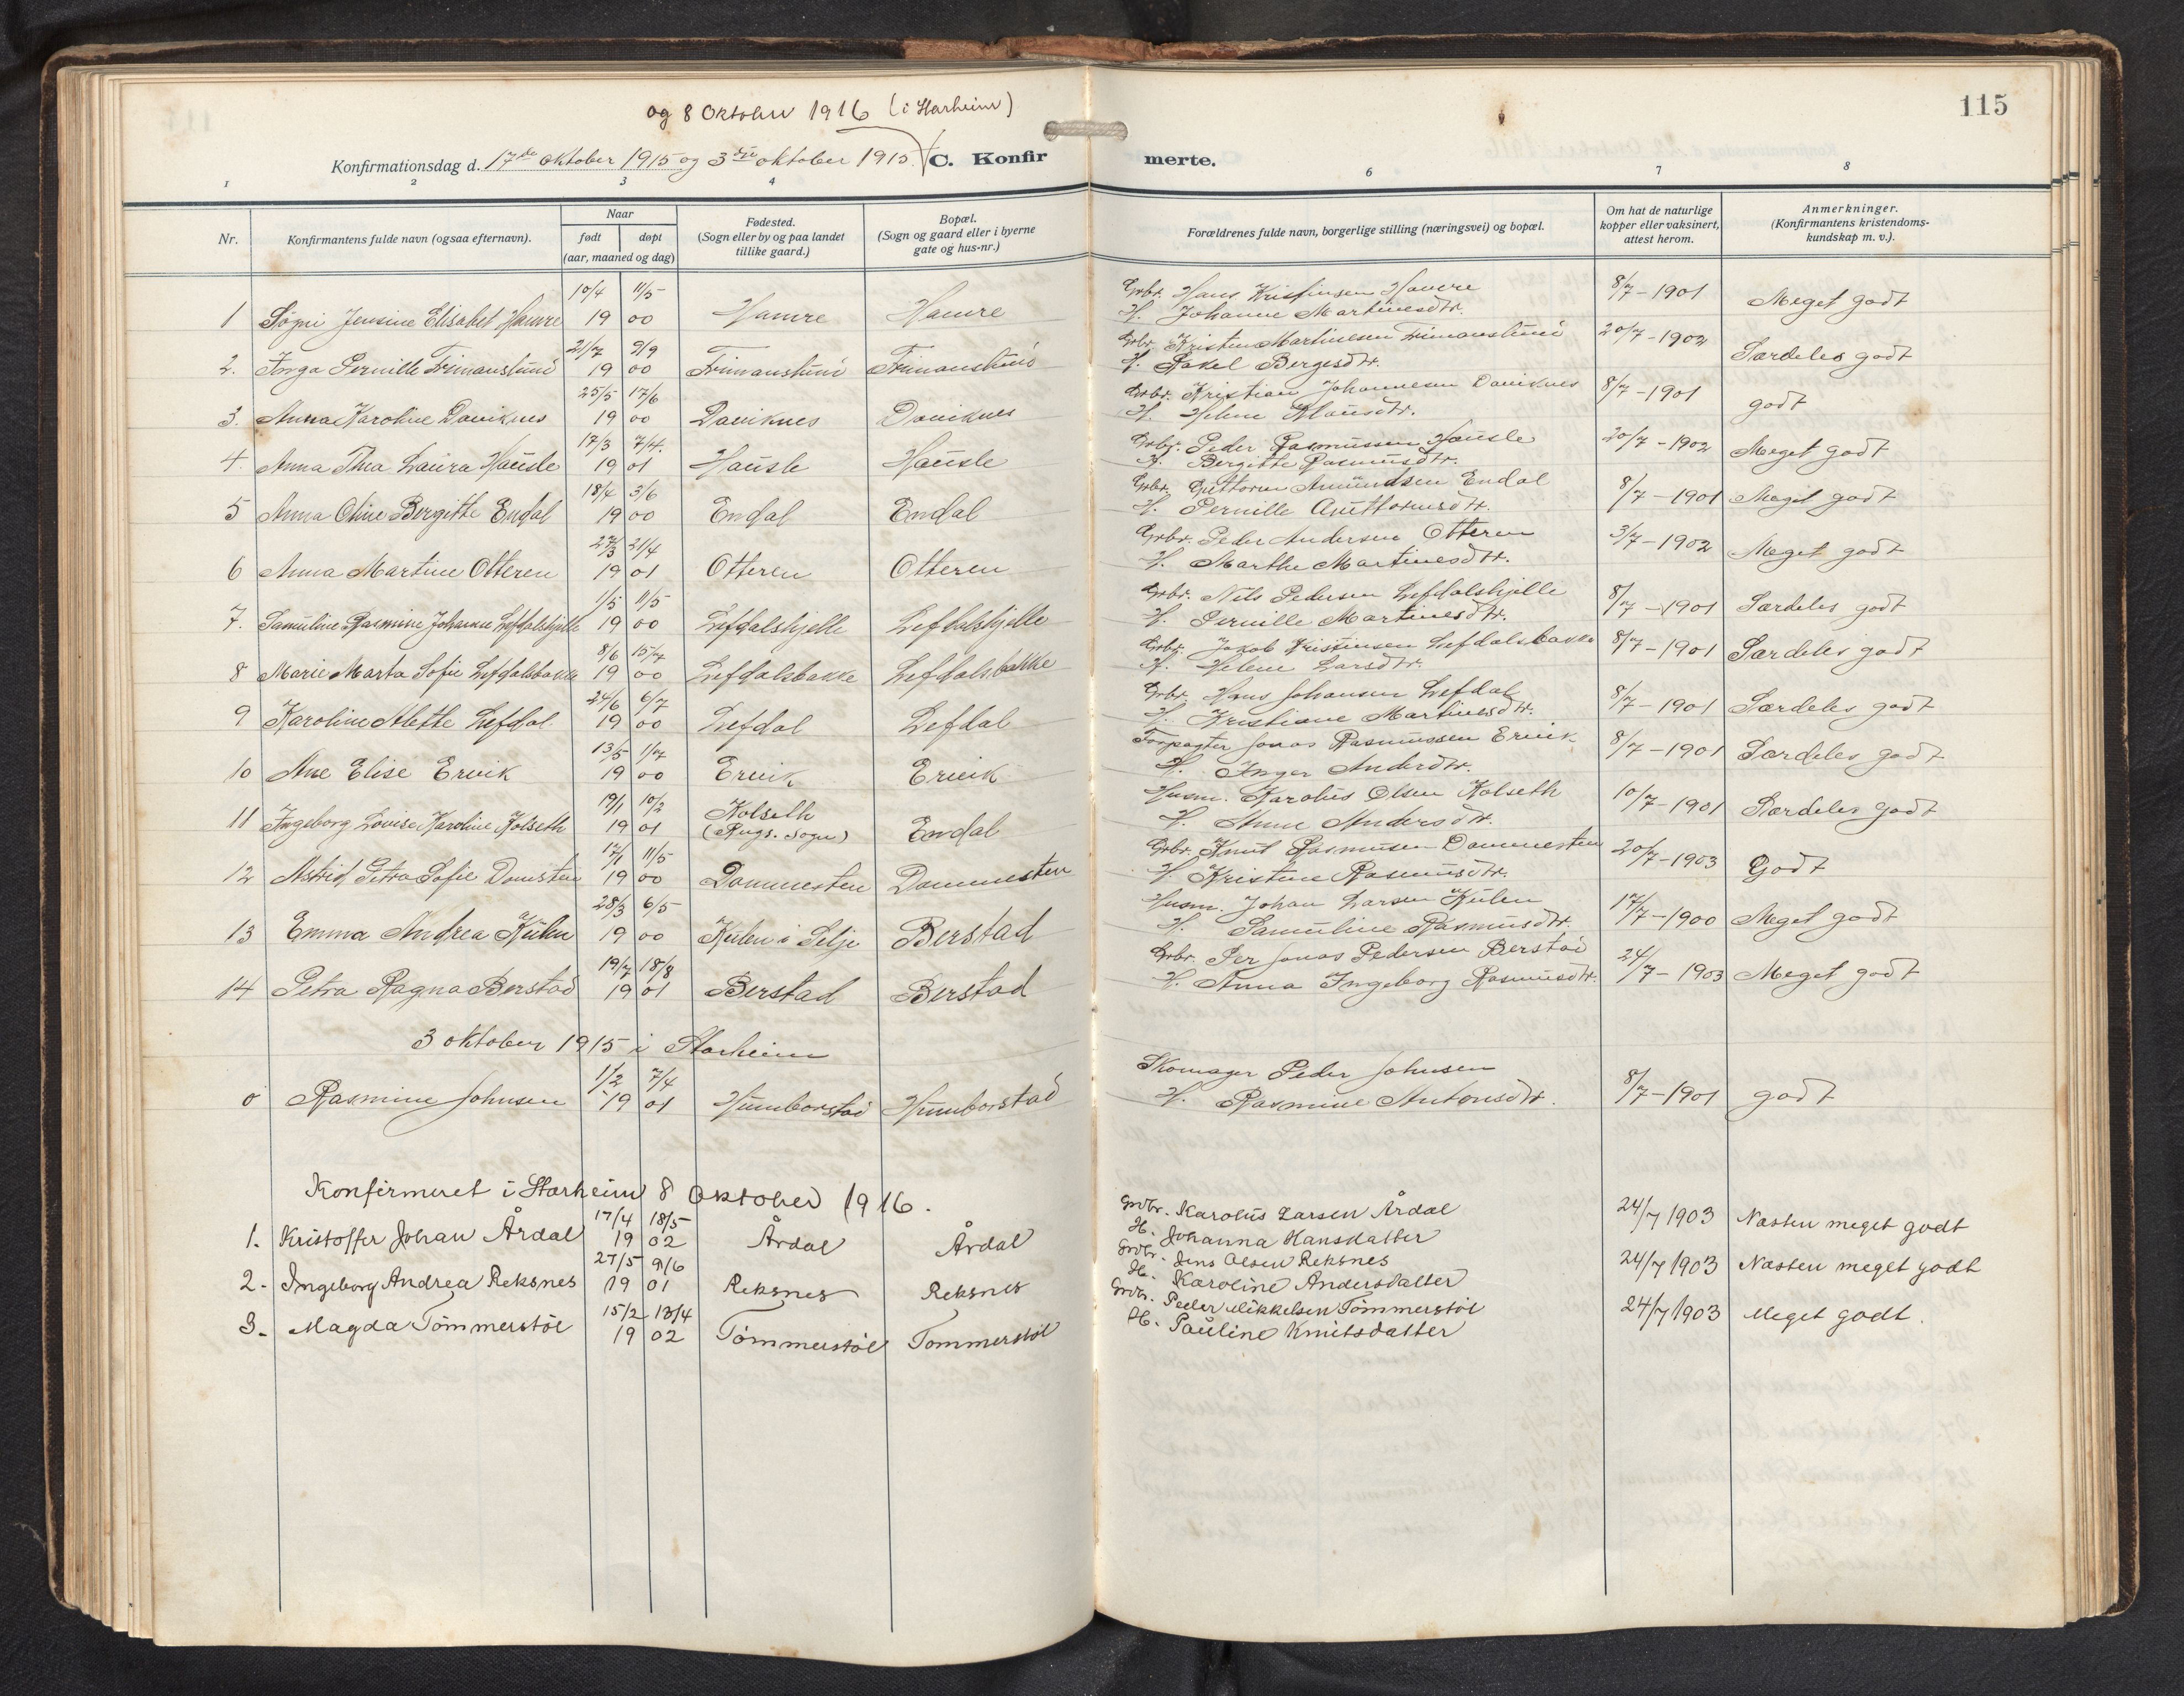 115
og 8 Oktober 1916 (i Starheim)
Konfirmationsdag d. 17de oktober 1915 og 3die oktober 1915. C. Konfirmerte.
1 2 3 4 6 7 8
Nr. Konfirmantens fulde navn (ogsaa efternavn). Naar født døpt (aar, maaned og dag) Fødested. (Sogn eller by og paa landet tillike gaard.) Bopæl. (Sogn og gaard eller i byerne gate og hus-nr.) Forældrenes fulde navn, borgerlige stilling (næringsvei) og bopæl. Om hat de naturlige kopper eller vaksinert, attest herom. Anmerkninger. (Konfirmantens kristendoms-kundskap m. v.).
10/4 11/5 Grbr. Hans Kristinsen Hamre 8/7-1901
1 Jensine Elisabet Hamre 19 00 Hamre Hamre H. Johanne Martinesdtr. Meget godt
21/7 9/9 Grbr. Kristen Martinesen 20/7-1902
2. Inga Pernille 19 00 H. Rakel Bergesdtr. Særdeles godt
25/5 17/6 Grbr. Kristian Johannesen Daviknes 8/7-1901
3. Anna Karoline Daviknes 19 00 Daviknes Daviknes H. Helene Klausdtr. godt
17/3 7/4. Grbr. Peder Rasmussen Hausle 20/7-1902
4. Anna Thea Laura Hausle 19 01 Hausle Hausle H. Bergitte Rasmusdtr. Meget godt
18/4 3/6 Grbr. Guttorm Amundsen Endal 8/7-1901
5 Anna Oline Bergitte Endal 19 00 Endal Endal H. Pernille Guttormsdtr. Meget godt
27/3 21/4 Grbr. Peder Andersen Otteren 3/7-1902
6 Anna Martine Otteren 19 01 Otteren Otteren H. Marthe Martinesdtr. Meget godt
1/5 11/5 Grbr. Nils Pedersen Lefdalshjelle 8/7-1901
7. Samuline Rasmine Johanne Lefdalshjelle 19 00 Lefdalshjelle Lefdalshjelle H. Pernille Martinesdtr. Særdeles godt
8/6 15/7 Grbr. Jakob Kristensen Lefdalsbakke 8/7-1901
8 Marie Marta Sofie Lefdalsbakke 19 00 Lefdalsbakke Lefdalsbakke H. Helene Larsdtr. Særdeles godt
24/6 6/7 Grbr. Hans Johansen Lefdal 8/7-1901
9 Karoline Alette Lefdal 19 00 Lefdal Lefdal H. Kristiane Martinesdtr. Særdeles godt
13/5 1/7 Forpagter Jonas Rasmussen Ervik 8/7-1901
10 Ane Elise Ervik 19 00 Ervik Ervik H. Inger Andersdtr. Særdeles godt
19/1 10/2 Kolseth Husm. Karolus Olsen Kolseth 10/7-1901
11 Ingeborg Lovise Karoline Kolseth 19 01 (Rugs. sogn) Endal H. Anne Andersdtr. Særdeles godt
17/1 11/5 Grbr. Knut Rasmusen Dommesten 20/7-1903
12 Astrid Petra Sofie 19 00 Dommesten Dommesten H. Kristine Rasmusdtr. Godt
28/3 6/5 Husm. Johan Larsen Kulen 17/7-1900
13 Emma Andrea Kulen 19 00 Kulen i Selje Berstad H. Samuline Rasmusdtr. Meget godt
19/7 18/8 Grbr. Per Jonas Pedersen Berstad 24/7-1903
14 Petra Ragna Berstad 19 01 Berstad Berstad H. Anna Ingeborg Rasmusdtr. Meget godt
3 oktober 1915 i Starheim
1/2 7/4 Skomager Peder Johnsen 8/7-1901
Rasmine Johnsen 19 01 Humborstad Humborstad H. Rasmine Antonsdtr. godt
Konfirmeret i Starheim 8 Oktober 1916.
17/4 18/5 Grdbr. Karolus Larsen Årdal 24/7 1903
1. Kristoffer Johan Årdal 19 02 Årdal Årdal H. Johanna Hansdatter Næsten meget godt
27/5 9/6 Grdbr. Jens Olsen Reksnes 24/7 1903
2- Ingeborg Andrea Reksnes 19 01 Reksnes Reksnes H. Karoline Andersdatter Næsten meget godt
15/2 13/4 Grdbr. Peder Mikkelsen Tømmerstøl 24/7 1903
3- Magda Tømmerstøl 19 02 Tømmerstøl Tømmerstøl H. Pauline Knutsdatter Meget godt.